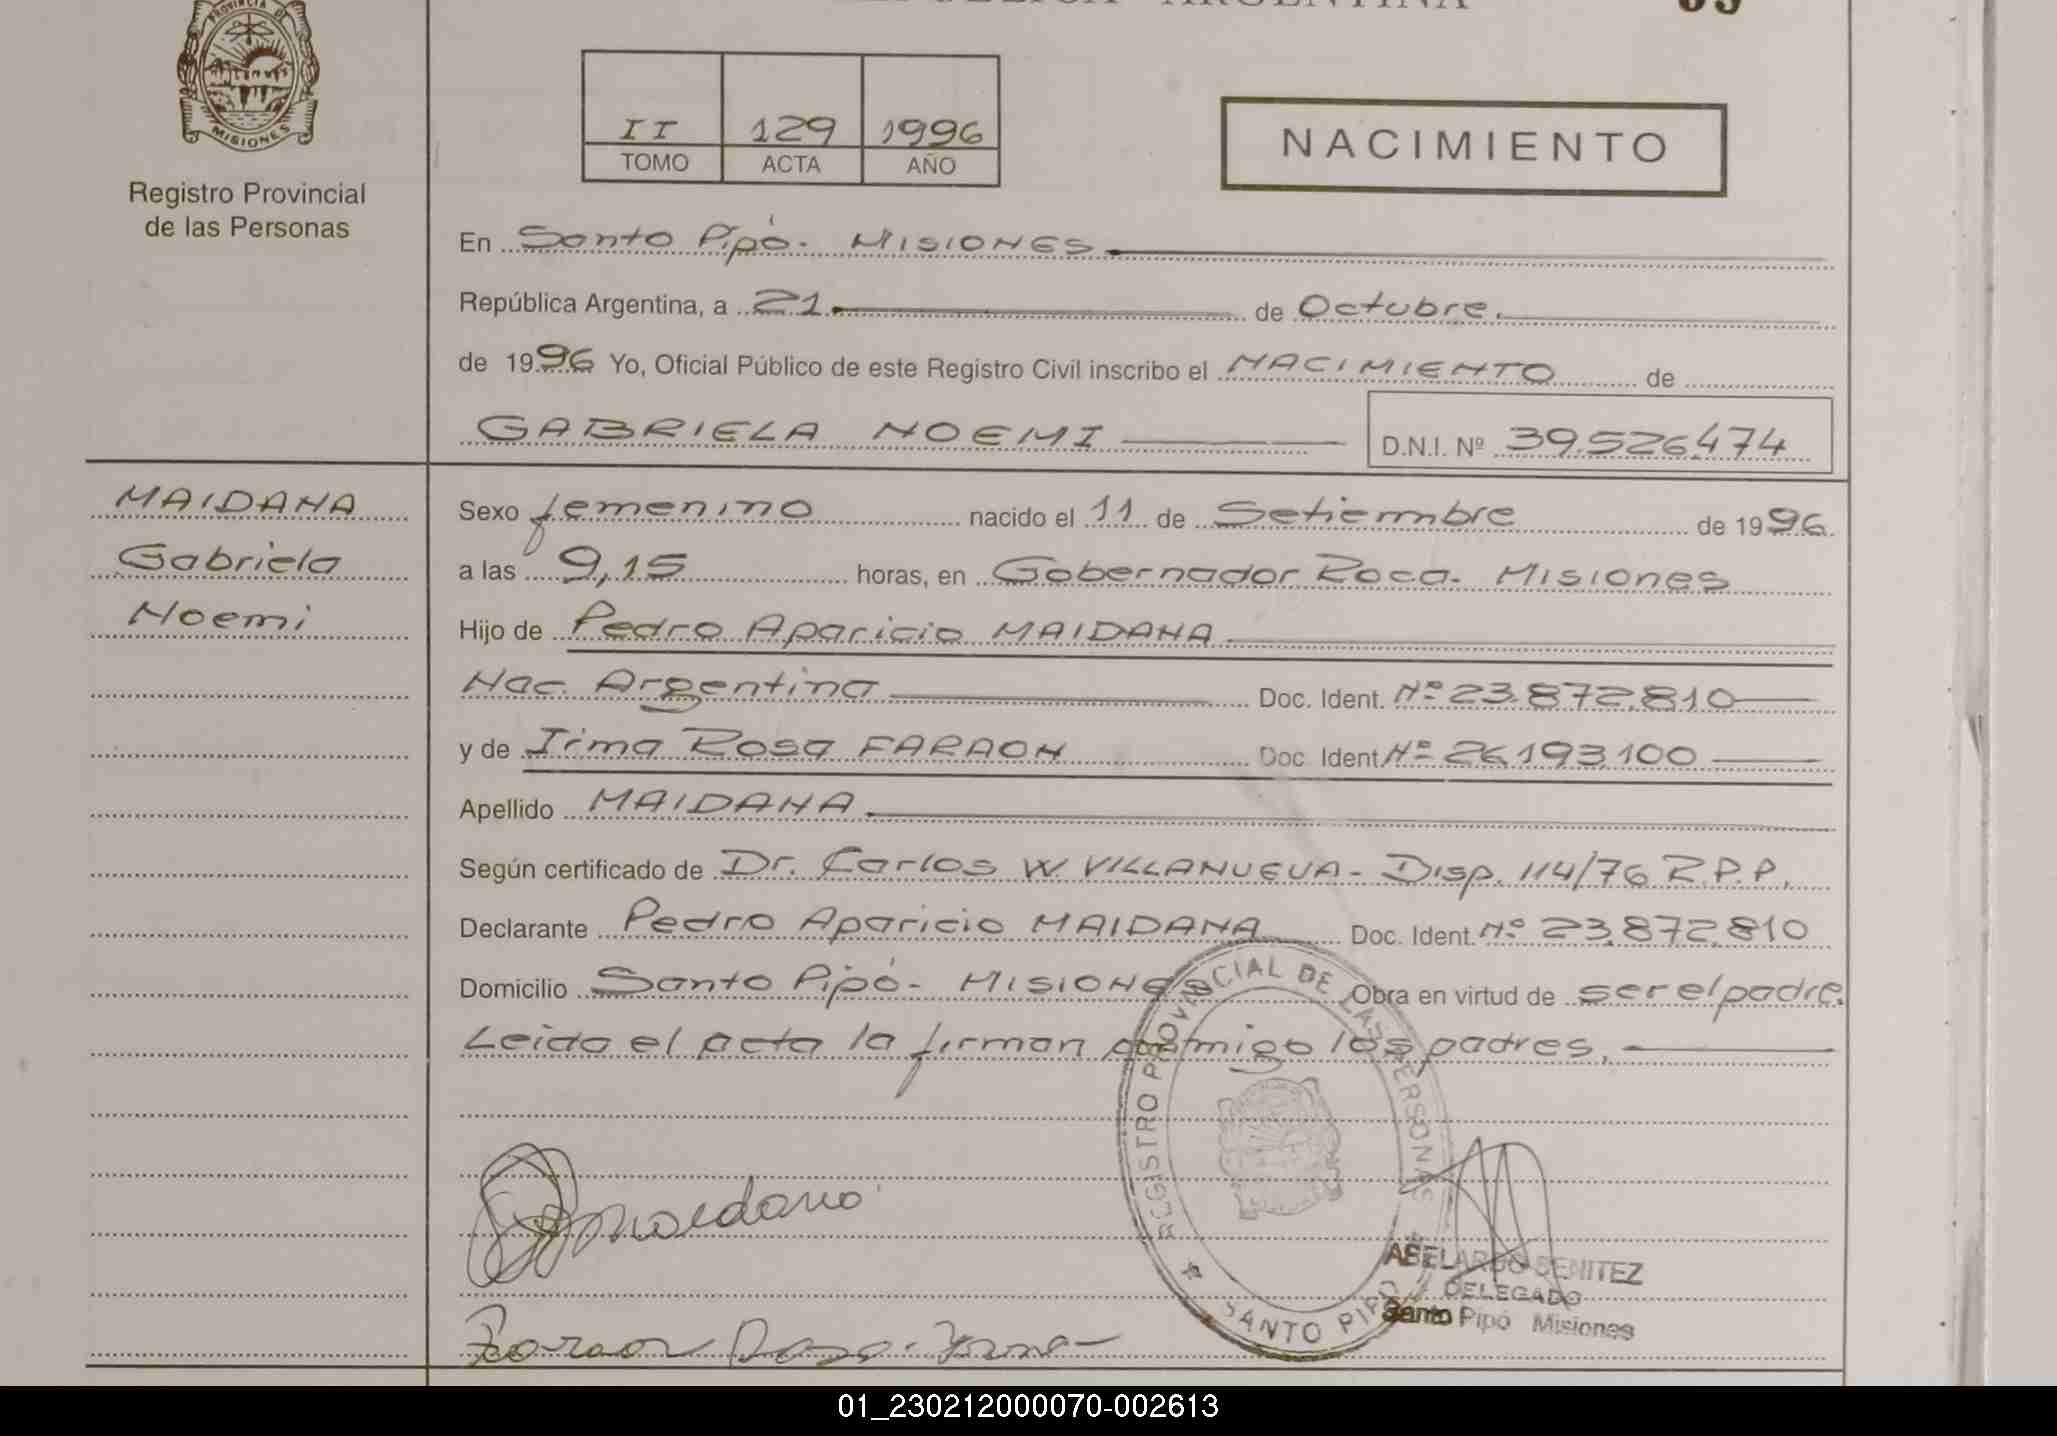 PROVINCIA DE
MISIONES
REPUBLICA ARGENTINA
Registro Provincial
de las Personas
II 129 1996
TOMO ACTA AÑO
NACIMIENTO
En Santo Pipó. MISIONES.
República Argentina, a 21. de Octubre.
de 1996 Yo, Oficial Público de este Registro Civil inscribo el NACIMIENTO de
GABRIELA NOEMI D.N.I. Nº 39.526.474
MAIDANA
Gabriela
Noemi
Sexo femenino nacido el 11 de Setiembre de 1996.
a las 9,15 horas, en Gobernador Roca. Misiones
Hijo de Pedro Aparicio MAIDANA
Nac. Argentina Doc. Ident. Nº 23.872.810
y de Irma Rosa FARAON Doc Ident Nº 26.193.100
Apellido MAIDANA
Según certificado de Dr. Carlos W. VILLANUEVA - Disp. 114/76 R.P.P.
Declarante Pedro Aparicio MAIDANA Doc. Ident. Nº 23.872.810
Domicilio Santo Pipó - MISIONES Obra en virtud de ser el padre.
Leida el acta la firman conmigo los padres.
REGISTRO PROVINCIAL DE LAS PERSONAS
SANTO PIPO
Maidana
ABELARDO BENITEZ
DELEGADO
Santo Pipó Misiones
Faraon Rosa Irma
01_230212000070-002613